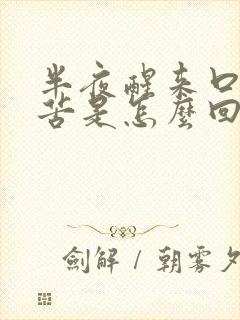 半夜醒来口
苦是怎麼回
劍解 / 朝雾夕